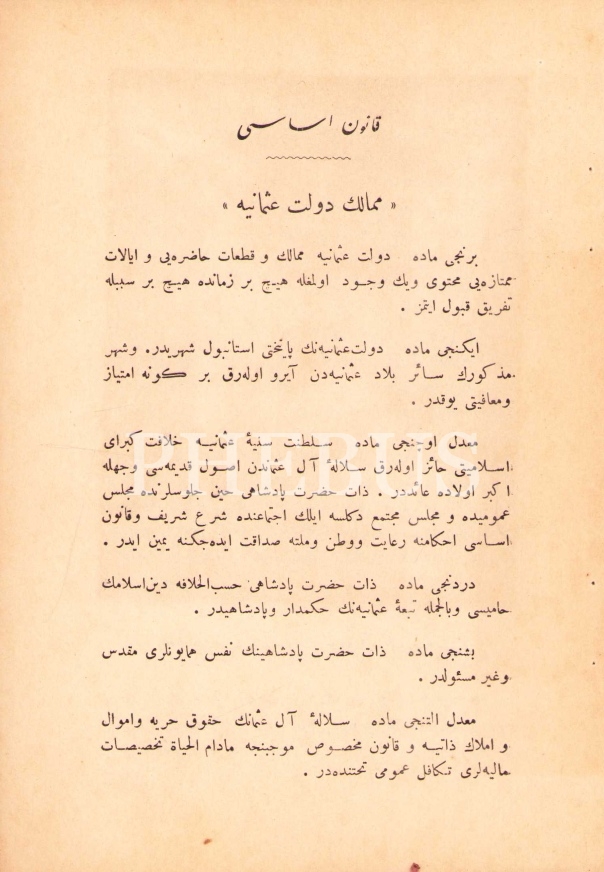 قانون اساسی
« ممالك دولت عثمانیه »
برنجی ماده دولت عثمانیه ممالك و قطعات حاضره‌یی و ایالات
ممتازه‌یی محتوی ویك وجود اولمغله هیچ بر زمانده هیچ بر سببله
تفریق قبول ایتمز .
ایكنجی ماده دولت‌عثمانیه‌نك پایتختی استانبول شهریدر. وشهر
مذكورك سائر بلاد عثمانیه‌دن آیرو اوله‌رق بر كونه امتیاز
ومعافیتی یوقدر .
معدل اوچنجی ماده سلطنت سنیهٔ عثمانیه خلافت كبرای
اسلامیتی حائز اوله‌رق سلالهٔ آل عثماندن اصول قدیمه‌سی وجهله
اكبر اولاده عائددر . ذات حضرت پادشاهی حین جلوسلرنده مجلس
عمومیده و مجلس مجتمع دكلسه ایلك اجتماعنده شرع شریف وقانون
اساسی احكامنه رعایت ووطن وملته صداقت ایده‌جكنه یمین ایدر .
دردنجی ماده ذات حضرت پادشاهی حسب‌الخلافه دین‌اسلامك
حامیسی وبالجمله تبعهٔ عثمانیه‌نك حكمدار وپادشاهیدر .
بشنجی ماده ذات حضرت پادشاهینك نفس همایونلری مقدس
وغیر مسئولدر .
معدل التنجی ماده سلالهٔ آل عثمانك حقوق حریه واموال
و املاك ذاتیه و قانون مخصوص موجبنجه مادام الحیاة تخصیصات
مالیه‌لری تكافل عمومی تحتنده‌در .
PHEBUS